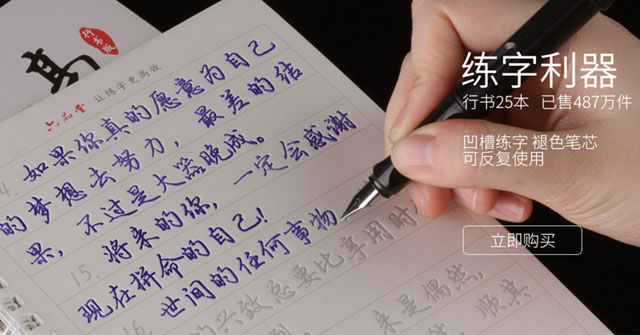 行书版
六品堂 让练字更高效
4. 如果你真的愿意为自己
的梦想去努力，最差的结
果，不过是大器晚成。
15. 将来的你，一定会感谢
现在拼命的自己!
16. 世间的任何事物
的兴致总要比享用时
来是偶然，
顺其
练字利器
行书25本 已售487万件
凹槽练字 褪色笔芯
可反复使用
立即购买